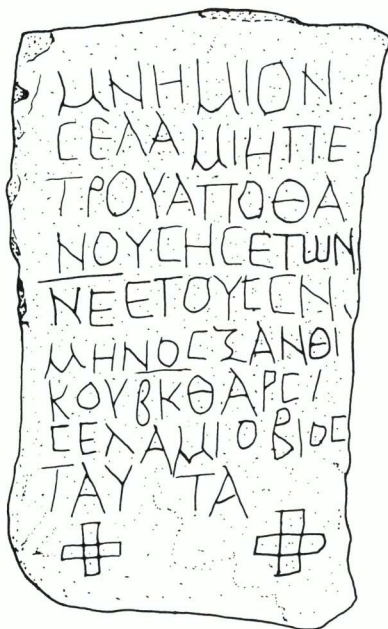 ΜΝΗΜΙΟΝ
ϹΕΛΑΜΙΗΠΕ
ΤΡΟΥΑΠΟΘΑ
ΝΟΥϹΗϹΕΤωΝ
ΝΕΕΤΟΥϹϹΝ
ΜΗΝΟϹΞΑΝΘΙ
ΚΟΥΒΚΘΑΡϹΙ
ϹΕΛΑΜΙΟΒΙΟϹ
ΤΑΥΤΑ